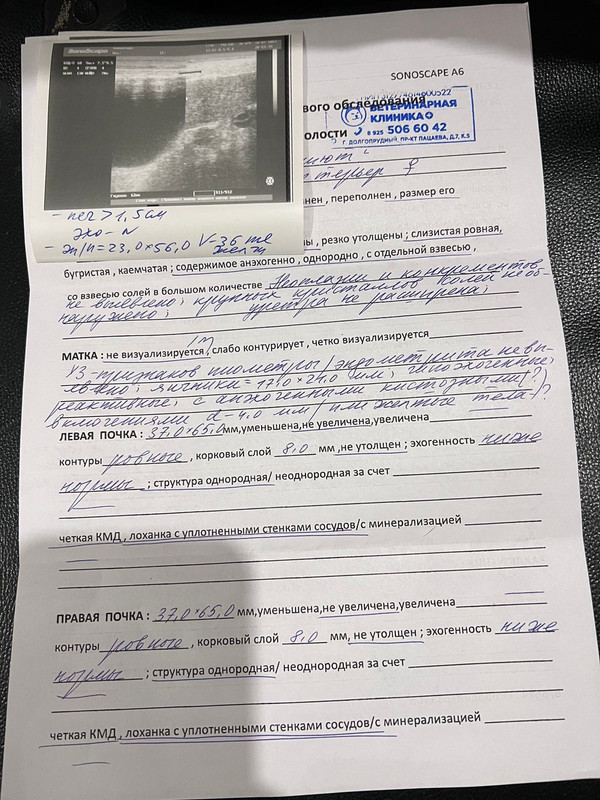 SonoScape
SONOSCAPE A6
511/512
вого обследования
ВЕТЕРИНАРНАЯ
КЛИНИКА
олости
8 925 506 60 42
Г. ДОЛГОПРУДНЫЙ, ПР-КТ ПАЦАЕВА, Д.7, К.5
терьер ♀
нен , переполнен , размер его
- пет > 1,5 см
эхо - N
- эл/п = 23,0 x 56,0 V - 36
ы , резко утолщены ; слизистая ровная,
бугристая , каемчатая ; содержимое анэхогенно , однородно , с отдельной взвесью ,
со взвесью солей в большом количестве Неоплазии и конкрементов
не выявлено; крупных кристаллов солей не об-
наружено; уретра не расширена;
МАТКА : не визуализируется, слабо контурирует , четко визуализируется
УЗ-признаков пиометры / эндометрита не вы-
явлено; яичники = 17,0 x 24,0 мм, гипоэхогенные,
реактивные, с анэхогенными кистозными (?)
включениями d - 4,0 мм / или желтые тела (?)
ЛЕВАЯ ПОЧКА : 37,0 x 65,0 мм,уменьшена,не увеличена,увеличена
контуры ровные , корковый слой 8,0 мм ,не утолщен ; эхогенность ниже
нормы ; структура однородная/ неоднородная за счет
четкая КМД , лоханка с уплотненными стенками сосудов/с минерализацией
ПРАВАЯ ПОЧКА : 37,0 x 65,0 мм,уменьшена,не увеличена,увеличена
контуры ровные , корковый слой 8,0 мм, не утолщен ; эхогенность ниже
нормы ; структура однородная/ неоднородная за счет
четкая КМД , лоханка с уплотненными стенками сосудов/с минерализацией